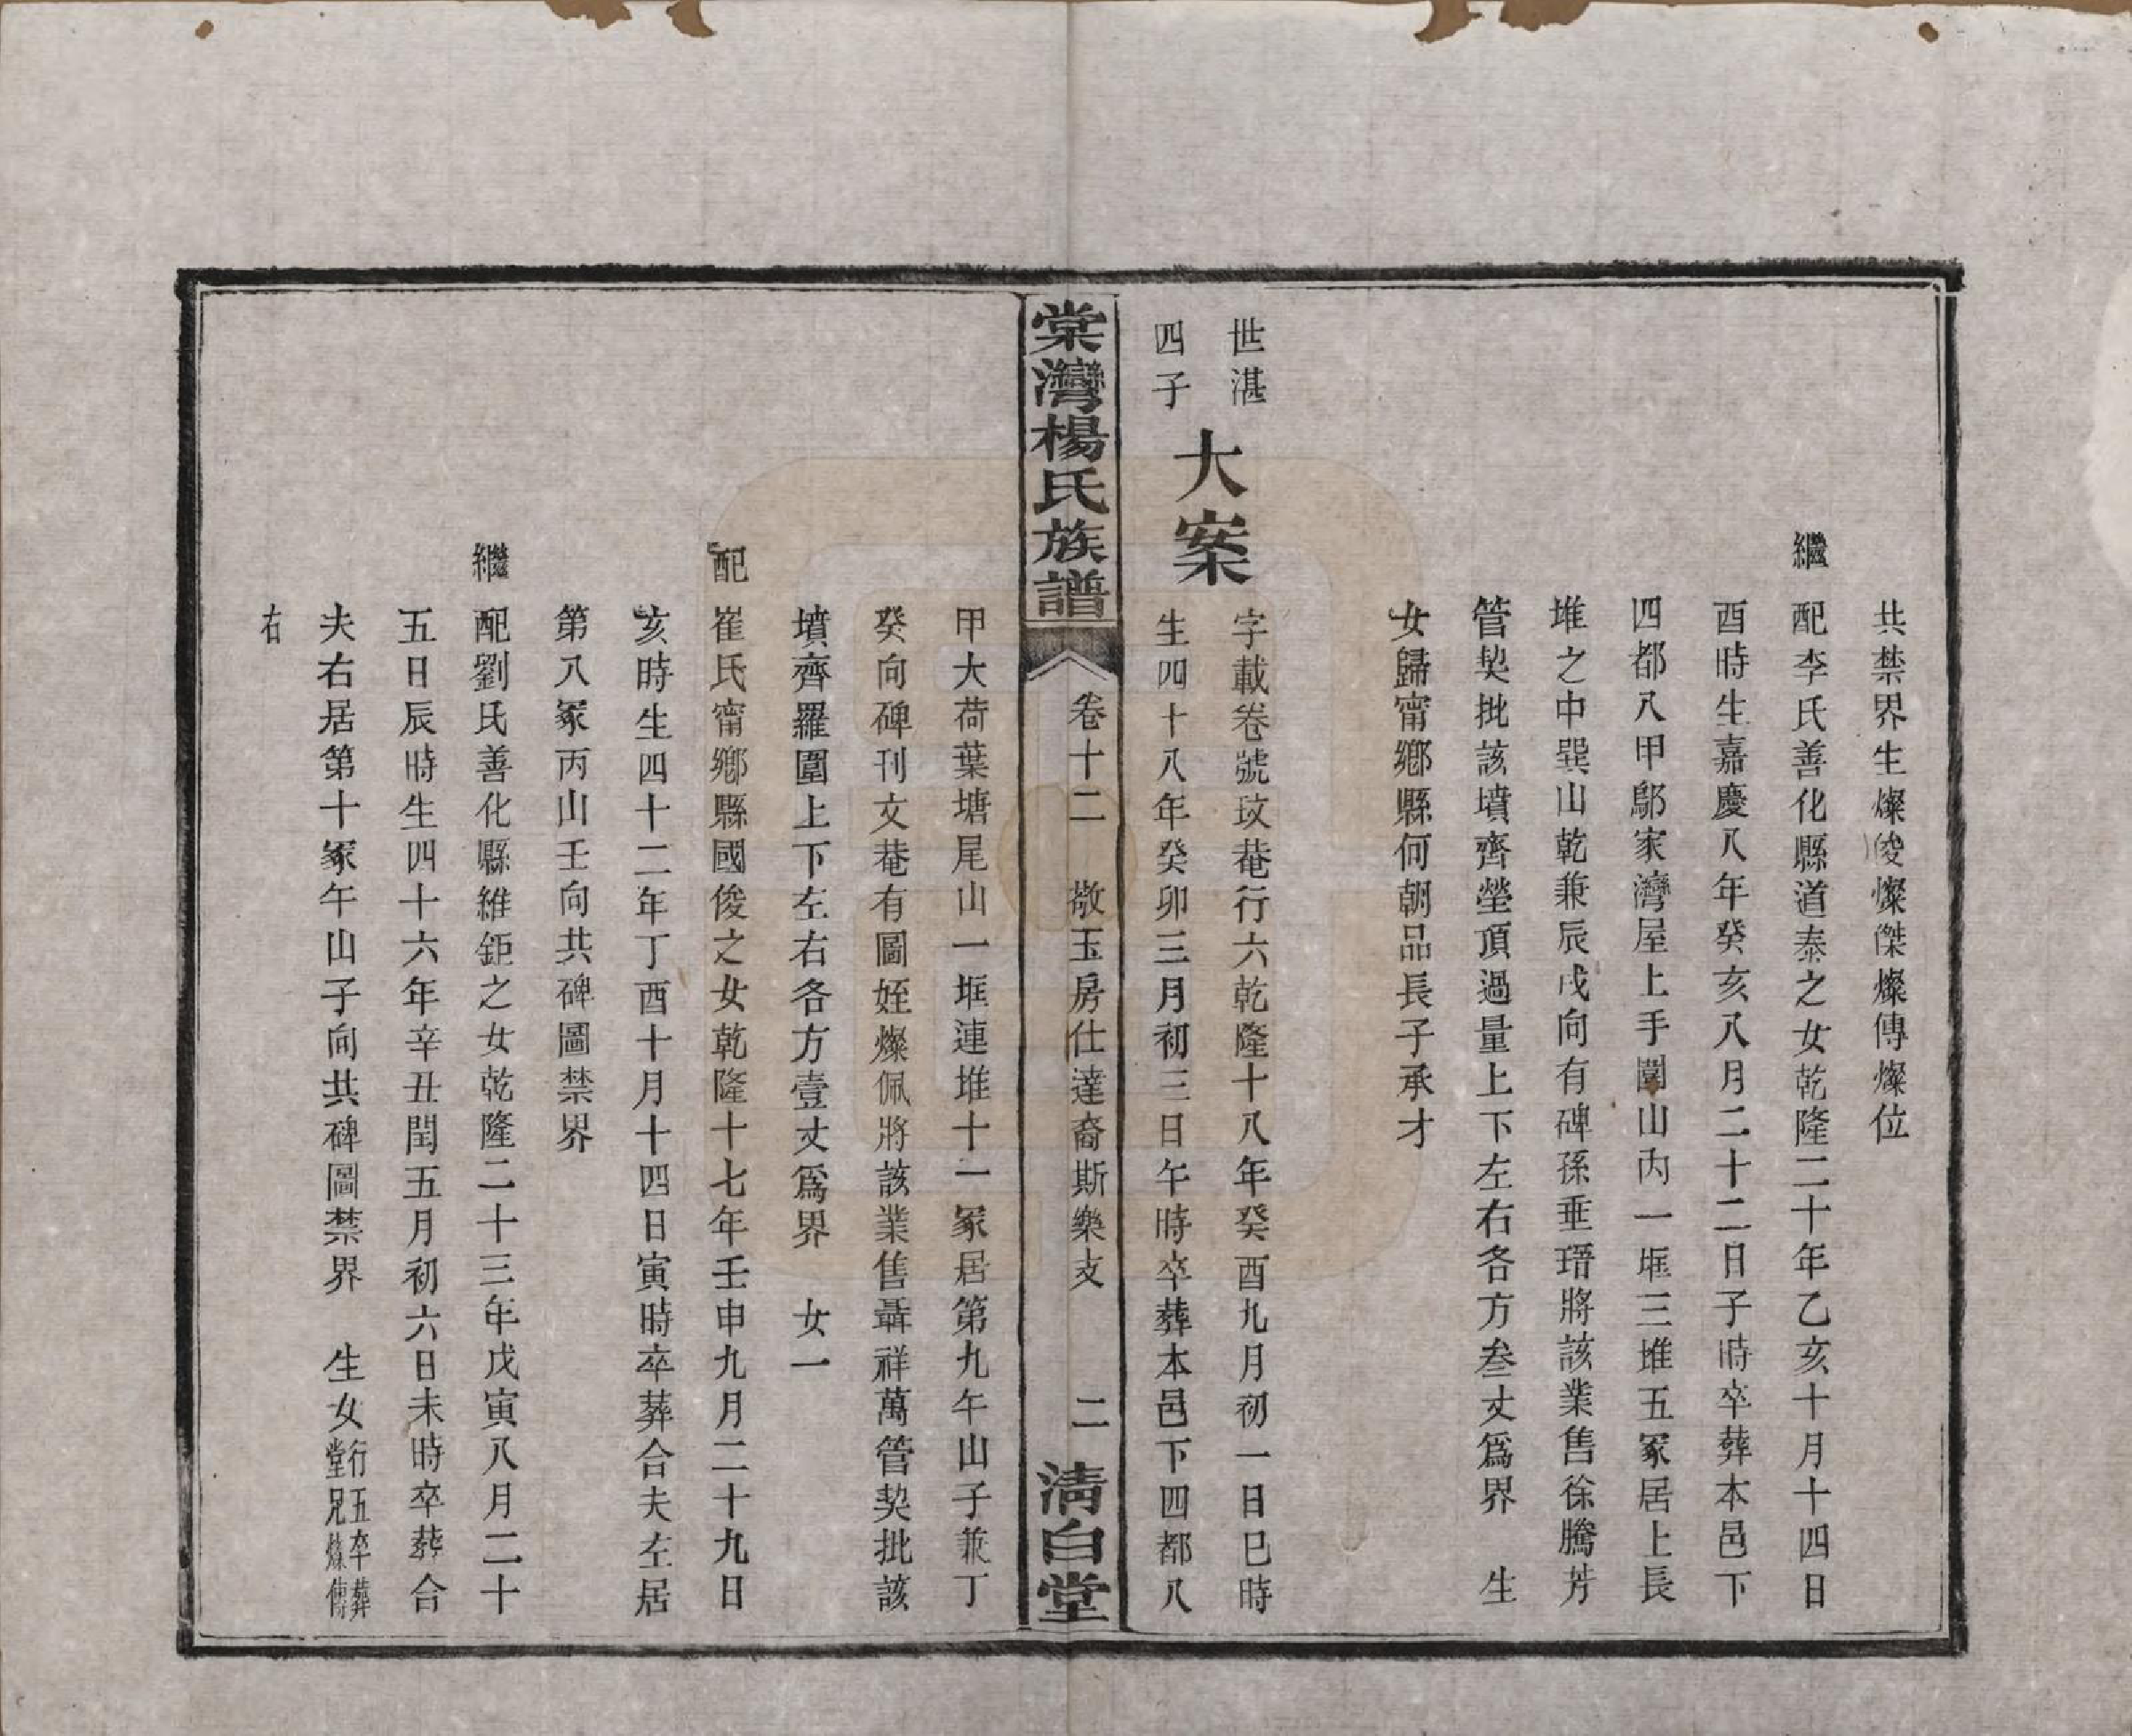 共禁界生燦俊燦傑燦傳燦位
繼配李氏善化縣道泰之女乾隆二十年乙亥十月十四日
酉時生嘉慶八年癸亥八月二十二日子時卒葬本邑下
四都八甲鄔家灣屋上手園山內一堆三堆五冢居上長
堆之中巽山乾兼辰戌向有碑孫垂瑨將該業售徐騰芳
管契批該墳齊塋頂過量上下左右各方叁丈爲界 生
女歸甯鄉縣何朝品長子承才
世湛
四子
大案
字載卷號玟菴行六乾隆十八年癸酉九月初一日巳時
生四十八年癸卯三月初三日午時卒葬本邑下四都八
棠灣楊氏族譜 卷十二 敬玉房仕達裔斯樂支 二 清白堂
甲大荷葉塘尾山一堆連堆十一冢居第九午山子兼丁
癸向碑刊文菴有圖姪燦佩將該業售聶祥萬管契批該
墳齊羅圍上下左右各方壹丈爲界 女一
配崔氏甯鄉縣國俊之女乾隆十七年壬申九月二十九日
亥時生四十二年丁酉十月十四日寅時卒葬合夫左居
第八冢丙山壬向共碑圖禁界
繼配劉氏善化縣維鉅之女乾隆二十三年戊寅八月二十
五日辰時生四十六年辛丑閏五月初六日未時卒葬合
夫右居第十冢午山子向共碑圖禁界 生女行五卒葬堂兄燦傳
右